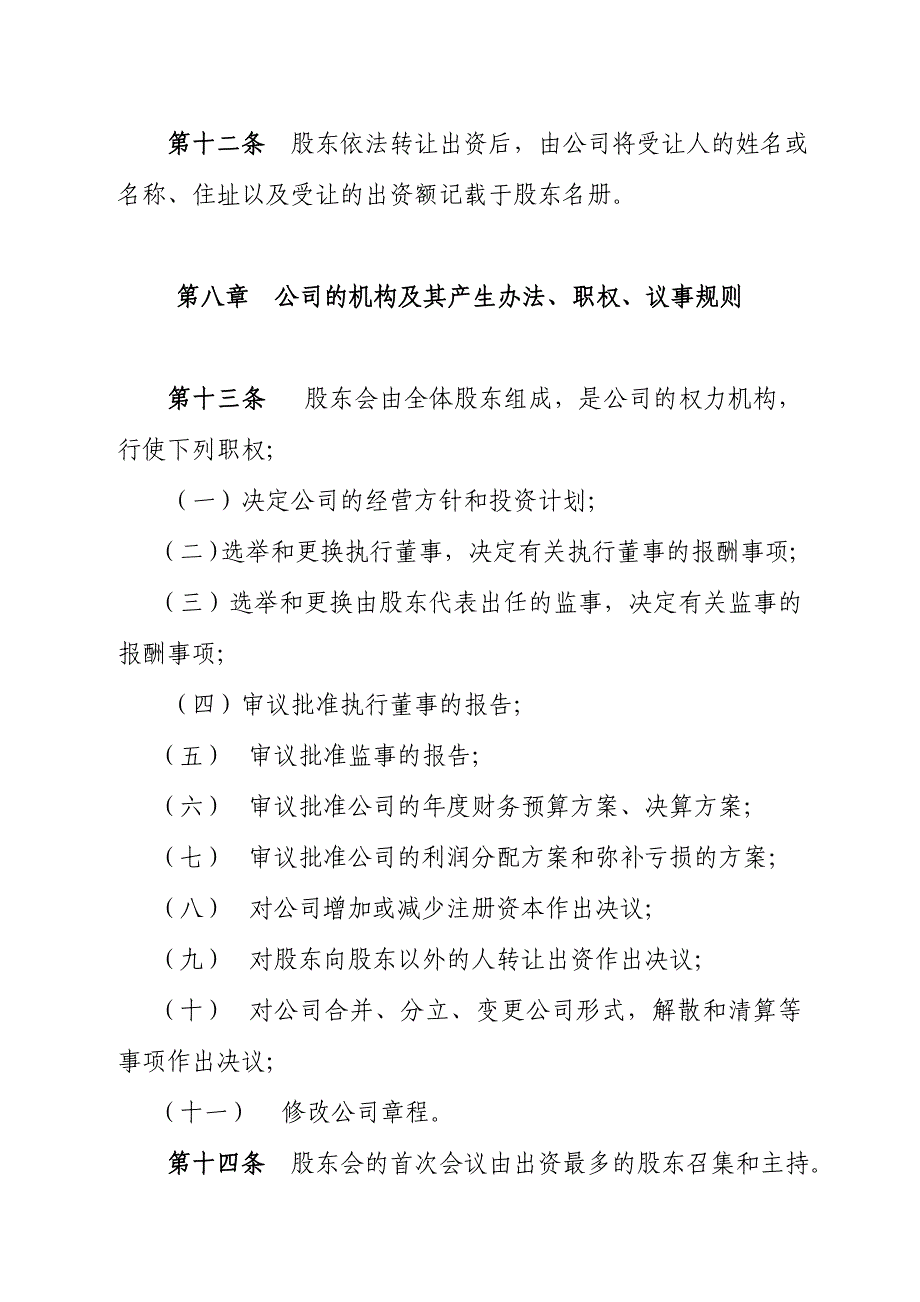 第十二条　股东依法转让出资后，由公司将受让人的姓名或
名称、住址以及受让的出资额记载于股东名册。
第八章　公司的机构及其产生办法、职权、议事规则
第十三条　股东会由全体股东组成，是公司的权力机构，
行使下列职权；
（一）决定公司的经营方针和投资计划；
（二）选举和更换执行董事，决定有关执行董事的报酬事项；
（三）选举和更换由股东代表出任的监事，决定有关监事的
报酬事项；
（四）审议批准执行董事的报告；
（五）　审议批准监事的报告；
（六）　审议批准公司的年度财务预算方案、决算方案；
（七）　审议批准公司的利润分配方案和弥补亏损的方案；
（八）　对公司增加或减少注册资本作出决议；
（九）　对股东向股东以外的人转让出资作出决议；
（十）　对公司合并、分立、变更公司形式，解散和清算等
事项作出决议；
（十一）　修改公司章程。
第十四条　股东会的首次会议由出资最多的股东召集和主持。